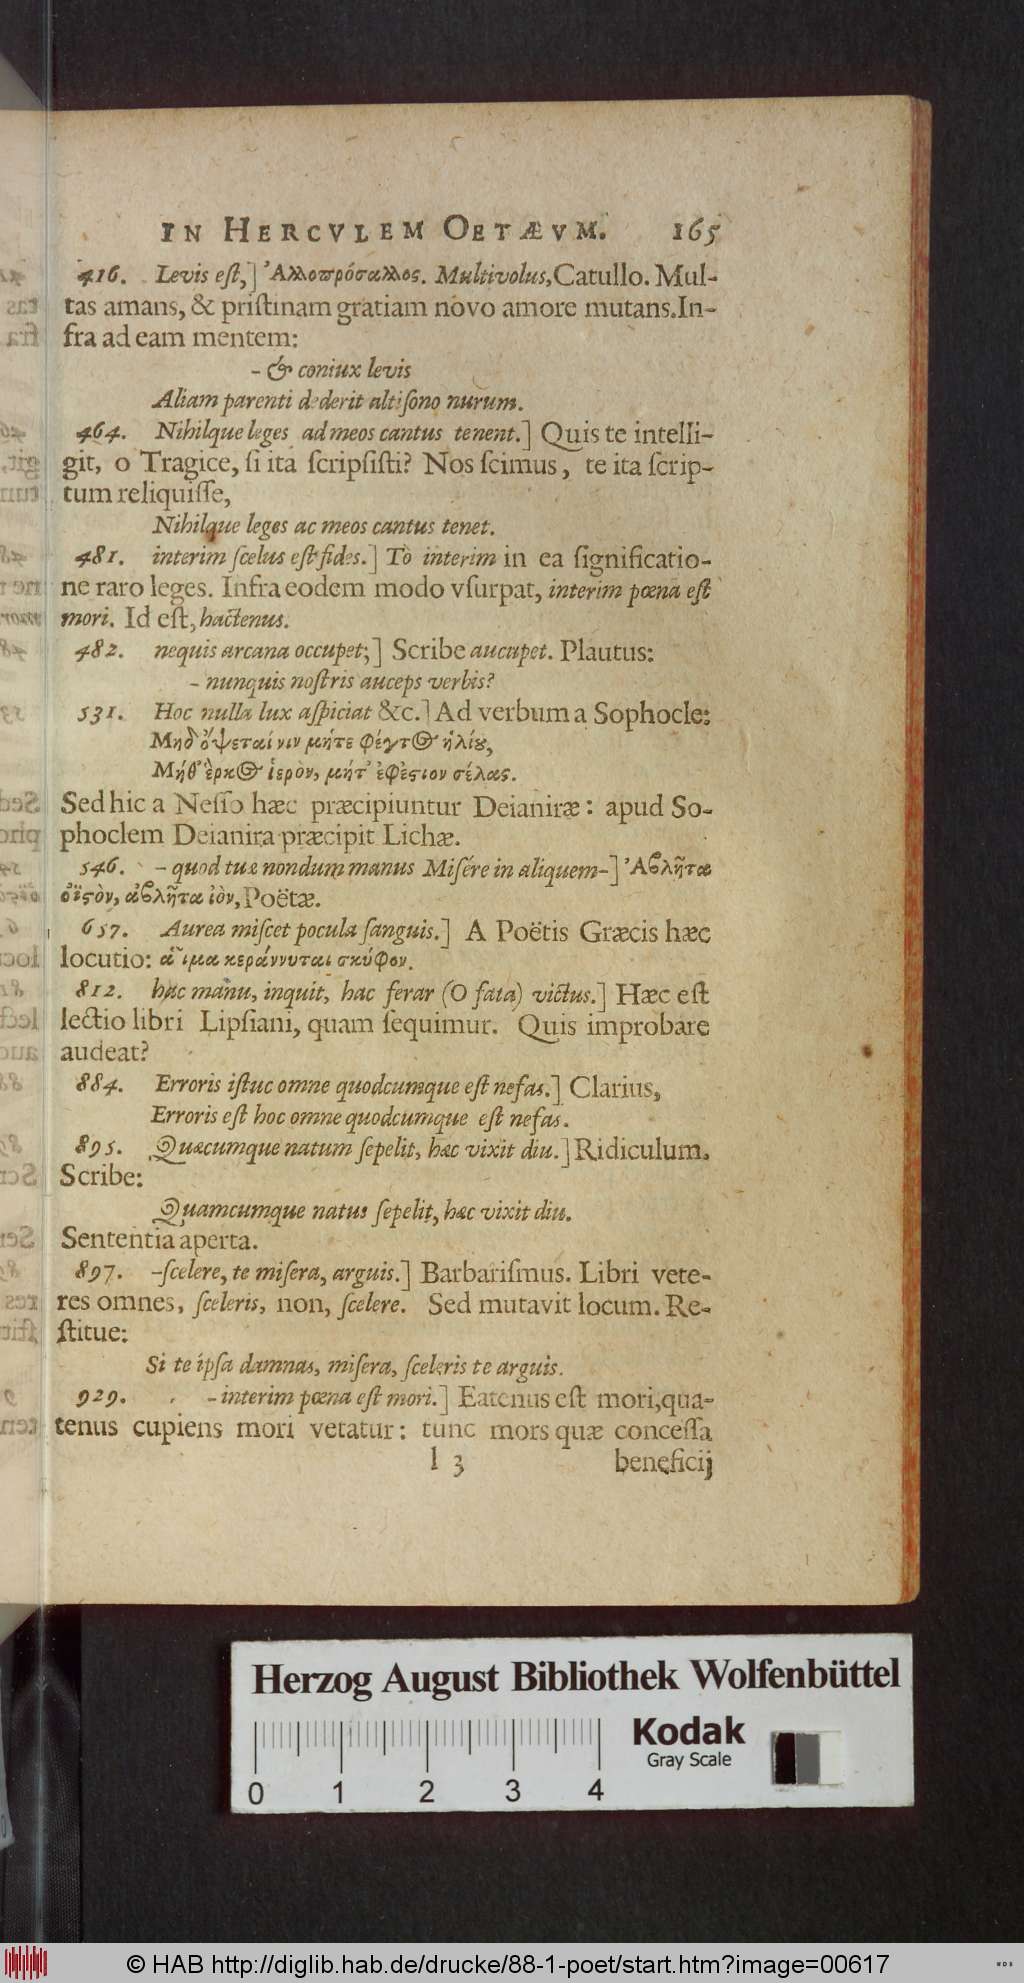 IN HERCVLEM OETÆVM. 165
416. Levis eſt,] Ἀλλοπρόσαλλος. Multivolus, Catullo. Mul-
tas amans, & priſtinam gratiam novo amore mutans. In-
fra ad eam mentem:
- & coniux levis
Aliam parenti dederit altiſono nurum.
464. Nihilque leges ad meos cantus tenent.] Quis te intelli-
git, o Tragice, ſi ita ſcripſiſti? Nos ſcimus, te ita ſcrip-
tum reliquiſſe,
Nihilque leges ac meos cantus tenet.
481. interim ſcelus eſt fides.] To interim in ea ſignificatio-
ne raro leges. Infra eodem modo vſurpat, interim pœna eſt
mori. Id eſt, hactenus.
482. nequis arcana occupet;] Scribe aucupet. Plautus:
- nunquis noſtris auceps verbis?
531. Hoc nulla lux aſpiciat &c.] Ad verbum a Sophocle:
Μηδ' ὄψεταί νιν μήτε φέγγος ἡλίου,
Μήθ' ἕρκος ἱερὸν, μήτ' ἐφέστιον σέλας.
Sed hic a Neſſo hæc præcipiuntur Deianiræ: apud So-
phoclem Deianira præcipit Lichæ.
546. - quod tuæ nondum manus Miſére in aliquem-] Ἀβλῆτα
ὀϊστὸν, ἀβλῆτα ἰὸν, Poëtæ.
657. Aurea miſcet pocula ſanguis.] A Poëtis Græcis hæc
locutio: αἷμα κεράννυται σκύφον.
812. hac manu, inquit, hac ferar (O fata) victus.] Hæc eſt
lectio libri Lipſiani, quam ſequimur. Quis improbare
audeat?
884. Erroris iſtuc omne quodcumque eſt nefas.] Clarius,
Erroris eſt hoc omne quodcumque eſt nefas.
895. Quæcumque natum ſepelit, hæc vixit diu.] Ridiculum.
Scribe:
Quamcumque natus ſepelit, hæc vixit diu.
Sententia aperta.
897. -ſcelere, te miſera, arguis.] Barbariſmus. Libri vete-
res omnes, ſceleris, non, ſcelere. Sed mutavit locum. Re-
ſtitue:
Si te ipſa damnas, miſera, ſceleris te arguis.
929. - interim pœna eſt mori.] Eatenus eſt mori, qua-
tenus cupiens mori vetatur: tunc mors quæ conceſſa
l 3 beneficij
Herzog August Bibliothek Wolfenbüttel
Kodak
Gray Scale
0 1 2 3 4
© HAB http://diglib.hab.de/drucke/88-1-poet/start.htm?image=00617